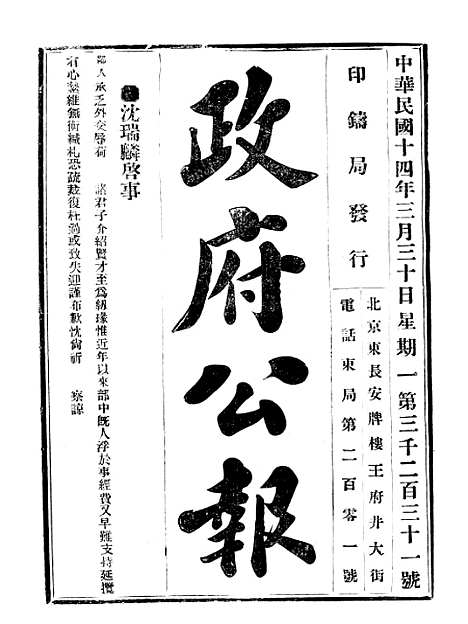 中華民國十四年三月三十日星期一第三千二百三十一號
印鑄局發行
北京東長安牌樓王府井大街
電話東局第二百零一號
政府公報
沈瑞麟啓事
鄙人承乏外交辱荷　諸君子介紹賢才至爲紉瑑惟近年以來部中旣人浮於事經費又早難支持延攬
有心縶維無術緘札恐疏裁復枉過或致失迎謹布歉忱尙祈　察諒